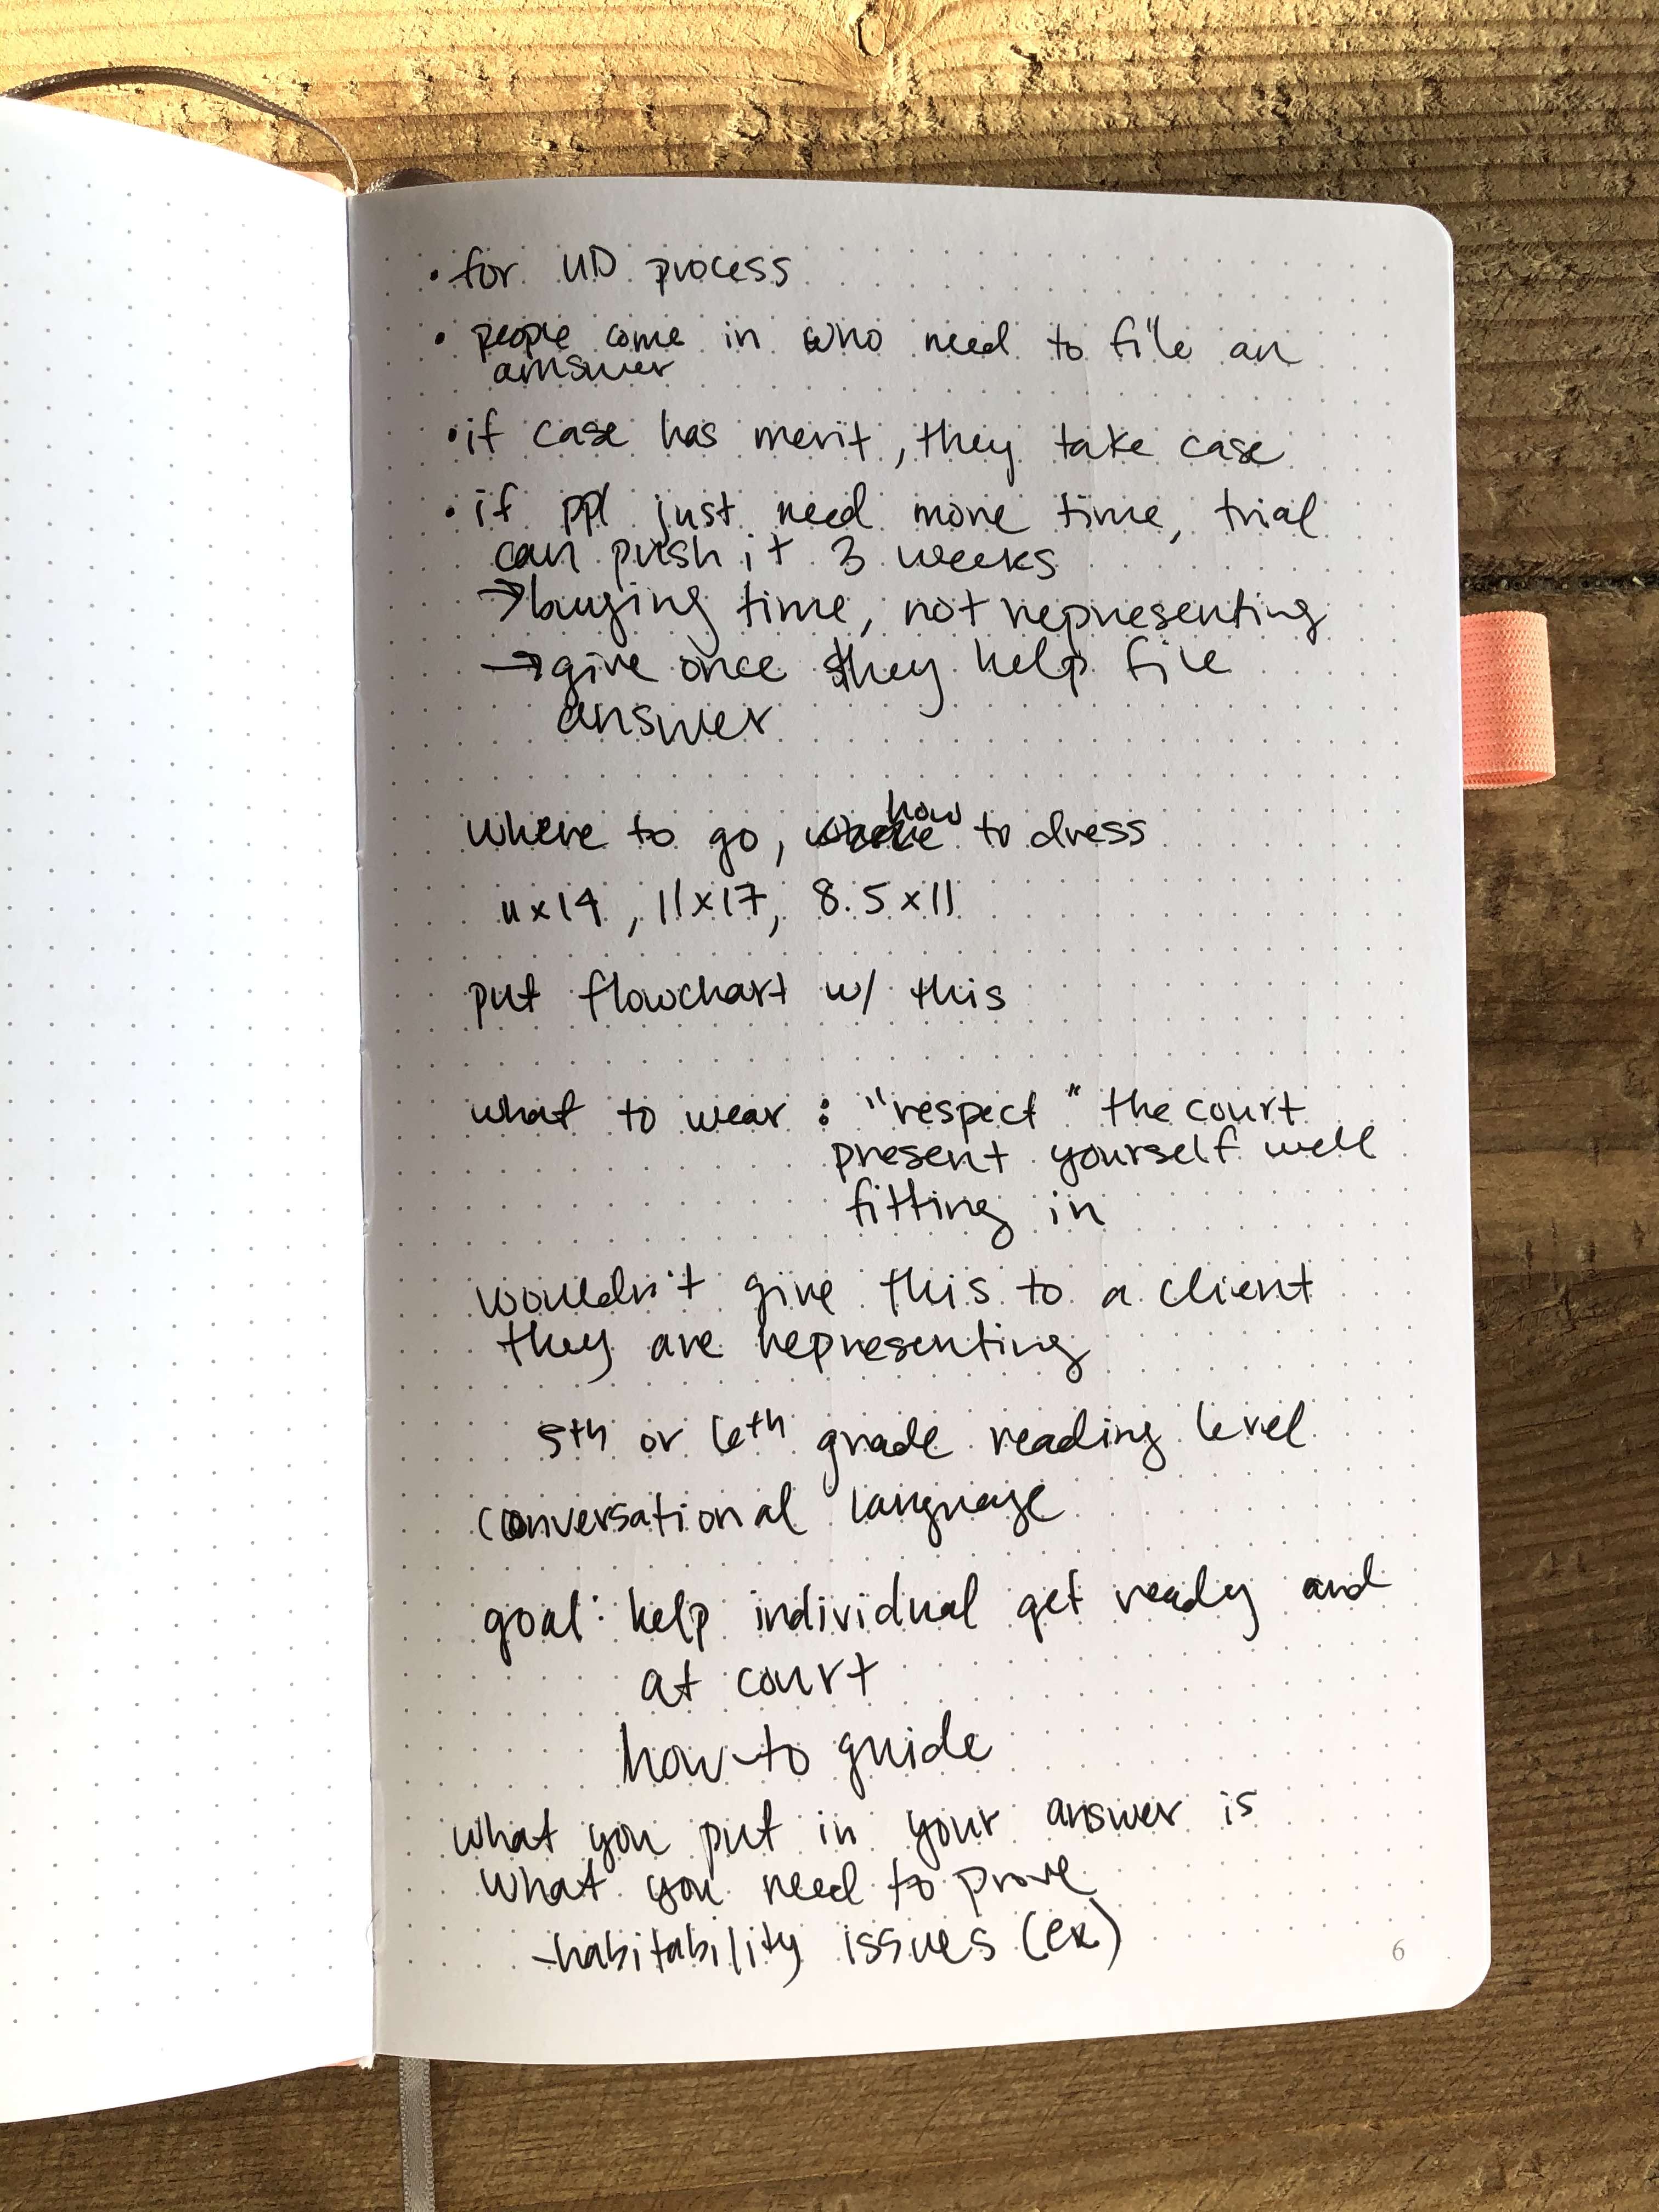 • for UD process
• people come in who need to file an
answer
• if case has merit, they take case
• if ppl just need more time, trial
can push it 3 weeks
→ buying time, not representing
→ give once they help file
answer
where to go, how to dress
11x14, 11x17, 8.5x11
put flowchart w/ this
what to wear: "respect" the court
present yourself well
fitting in
wouldn't give this to a client
they are representing
5th or 6th grade reading level
conversational language
goal: help individual get ready and
at court
how-to guide
what you put in your answer is
what you need to prove
-habitability issues (ex)
6